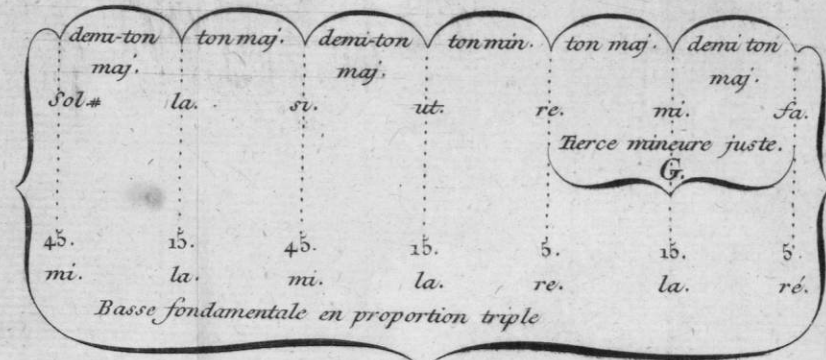 demi-ton ton maj. demi-ton ton min. ton maj. demi ton
maj. maj. maj.
Sol# la. si. ut. re. mi. fa.
Tierce mineure juste.
G.
45. 15. 45. 15. 5. 15. 5
mi. la. mi. la. re. la. ré.
Basse fondamentale en proportion triple